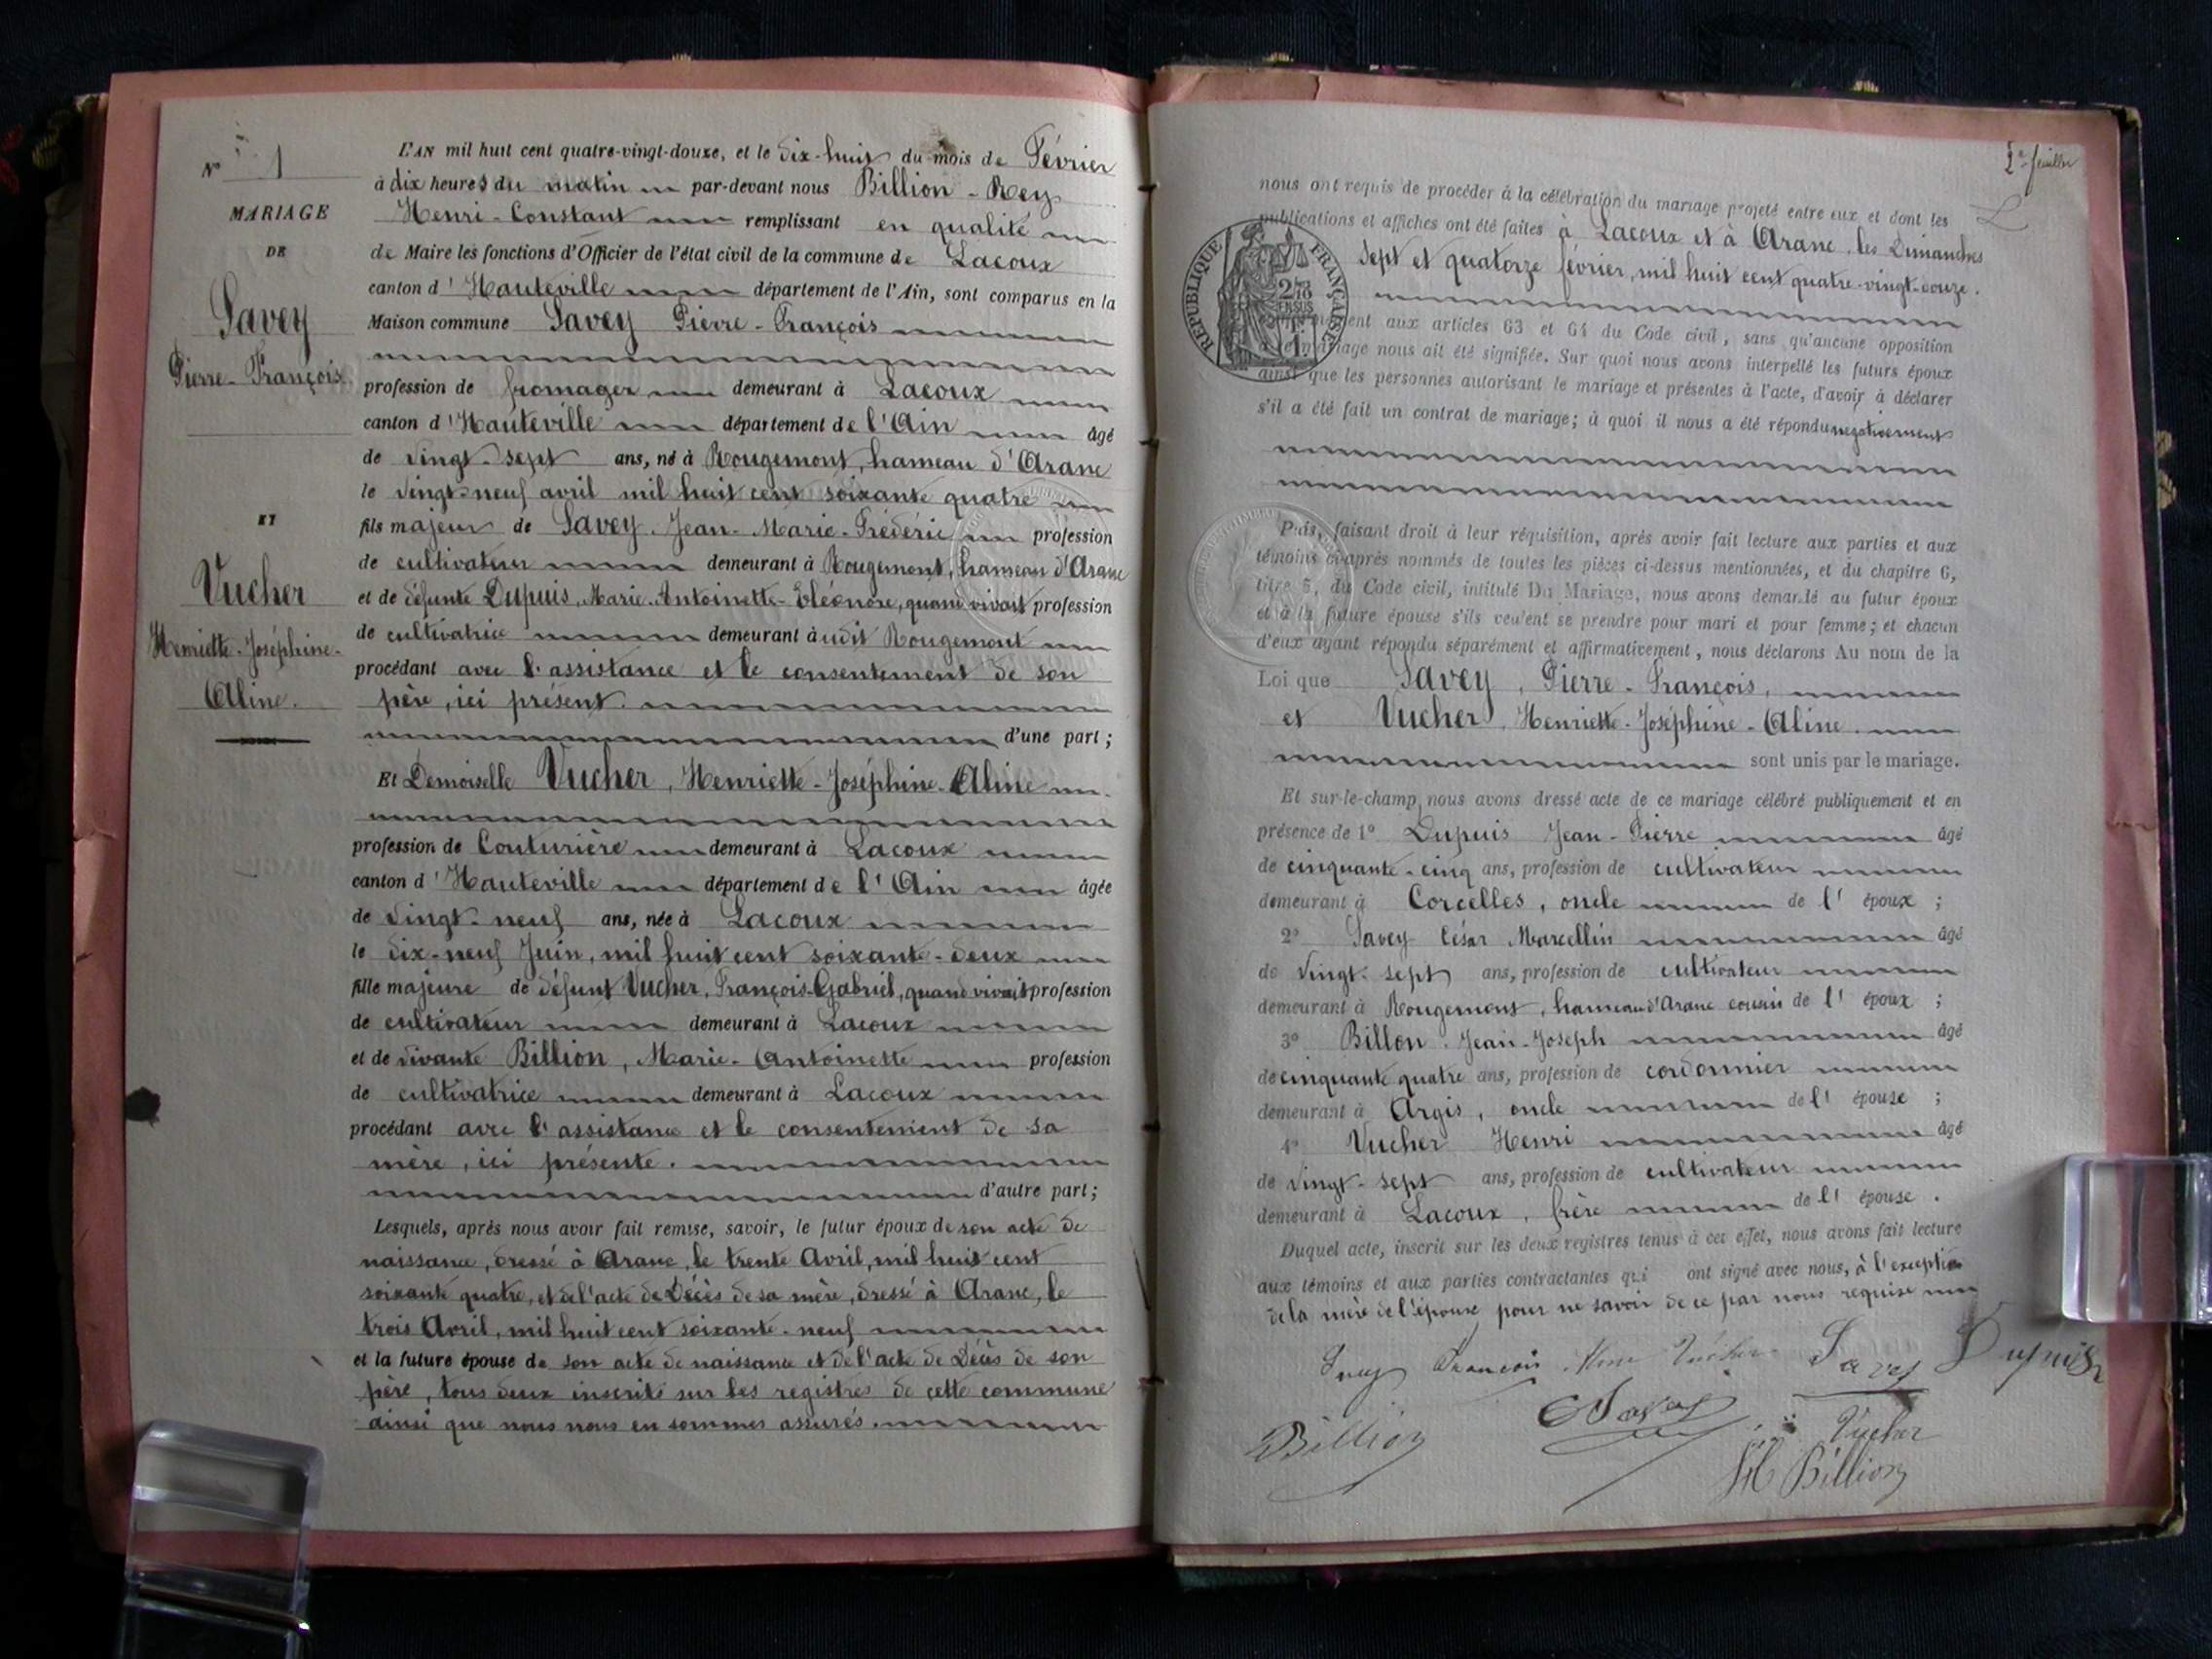 N° 1
MARIAGE
DE
Savey
Pierre-François
ET
Vucher
Henriette-Joséphine-
Aline.
L'AN mil huit cent quatre-vingt-douze, et le dix-huit du mois de Février
à dix heures du matin par-devant nous Billion-Rey
Henri-Constant remplissant en qualité
de Maire les fonctions d'Officier de l'état civil de la commune de Lacoux
canton d'Hauteville département de l'Ain, sont comparus en la
Maison commune Savey Pierre-François
profession de fromager demeurant à Lacoux
canton d'Hauteville département de l'Ain âgé
de vingt-sept ans, né à Rougemont, hameau d'Aranc
le vingt-neuf avril mil huit cent soixante quatre
fils majeur de Savey Jean-Marie-Frédéric profession
de cultivateur demeurant à Rougemont, hameau d'Aranc
et de défunte Dupuis, Marie-Antoinette-Eléonore, quand vivait profession
de cultivatrice demeurant à udit Rougemont
procédant avec l'assistance et le consentement de son
père, ici présent.
d'une part;
Et Demoiselle Vucher, Henriette-Joséphine-Aline
profession de Couturière demeurant à Lacoux
canton d'Hauteville département de l'Ain âgée
de vingt-neuf ans, née à Lacoux
le dix-neuf Juin, mil huit cent soixante-deux
fille majeure de défunt Vucher, François-Gabriel, quand vivait profession
de cultivateur demeurant à Lacoux
et de vivante Billion, Marie-Antoinette profession
de cultivatrice demeurant à Lacoux
procédant avec l'assistance et le consentement de sa
mère, ici présente.
d'autre part;
Lesquels, après nous avoir fait remise, savoir, le futur époux de son acte de
naissance, dressé à Aranc, le trente Avril, mil huit cent
soixante quatre, et de l'acte de Décès de sa mère, dressé à Aranc, le
trois Avril, mil huit cent soixante-neuf
et la future épouse de son acte de naissance et de l'acte de Décès de son
père, tous deux inscrits sur les registres de cette commune
ainsi que nous nous en sommes assurés.
2e feuillet
nous ont requis de procéder à la célébration du mariage projeté entre eux et dont les
publications et affiches ont été faites à Lacoux et à Aranc, les Dimanches
sept et quatorze février, mil huit cent quatre-vingt-douze.
RÉPUBLIQUE FRANÇAISE
2/10 EN SUS
aux articles 63 et 64 du Code civil, sans qu'aucune opposition
mariage nous ait été signifiée. Sur quoi nous avons interpellé les futurs époux
ainsi que les personnes autorisant le mariage et présentes à l'acte, d'avoir à déclarer
s'il a été fait un contrat de mariage; à quoi il nous a été répondu négativement
Puis, faisant droit à leur réquisition, après avoir fait lecture aux parties et aux
témoins ci-après nommés de toutes les pièces ci-dessus mentionnées, et du chapitre 6,
titre 5, du Code civil, intitulé Du Mariage, nous avons demandé au futur époux
et à la future épouse s'ils veulent se prendre pour mari et pour femme; et chacun
d'eux ayant répondu séparément et affirmativement, nous déclarons Au nom de la
Loi que Savey, Pierre-François,
et Vucher, Henriette-Joséphine-Aline.
sont unis par le mariage.
Et sur-le-champ nous avons dressé acte de ce mariage célébré publiquement et en
présence de 1° Dupuis Jean-Pierre âgé
de cinquante-cinq ans, profession de cultivateur
demeurant à Corcelles, oncle de l'époux;
2° Savey César Marcellin âgé
de vingt-sept ans, profession de cultivateur
demeurant à Rougemont, hameau d'Aranc cousin de l'époux;
3° Billon Jean-Joseph âgé
de cinquante quatre ans, profession de cordonnier
demeurant à Argis, oncle de l'épouse;
4° Vucher Henri âgé
de vingt-sept ans, profession de cultivateur
demeurant à Lacoux, frère de l'épouse.
Duquel acte, inscrit sur les deux registres tenus à cet effet, nous avons fait lecture
aux témoins et aux parties contractantes qui ont signé avec nous, à l'exception
de la mère de l'épouse pour ne savoir de ce par nous requise
Savey François Aline Vucher Savey Dupuis
Billion CSavey Vucher
HC Billion